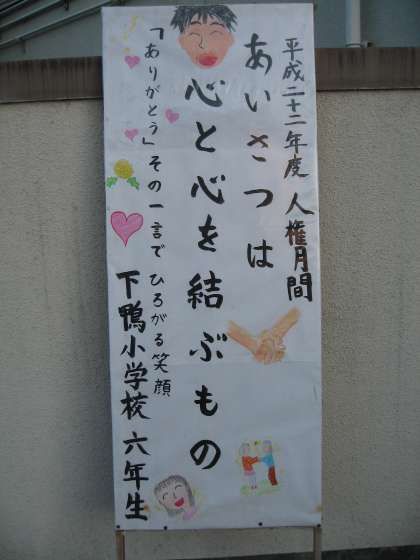 平成二十二年度 人権月間
あいさつは
心と心を結ぶもの
「ありがとう」その一言で ひろがる笑顔
下鴨小学校 六年生